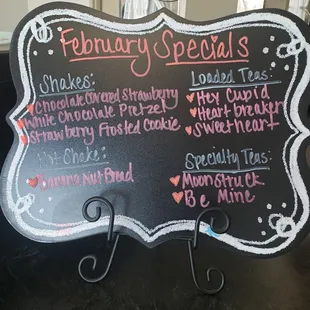 February Specials
Shakes:
Chocolate Covered Strawberry
White Chocolate Pretzel
Strawberry Frosted Cookie
Hot Shake:
Banana Nut Bread
Loaded Teas:
Hey Cupid
Heart breaker
Sweetheart
Specialty Teas:
Moonstruck
Be Mine